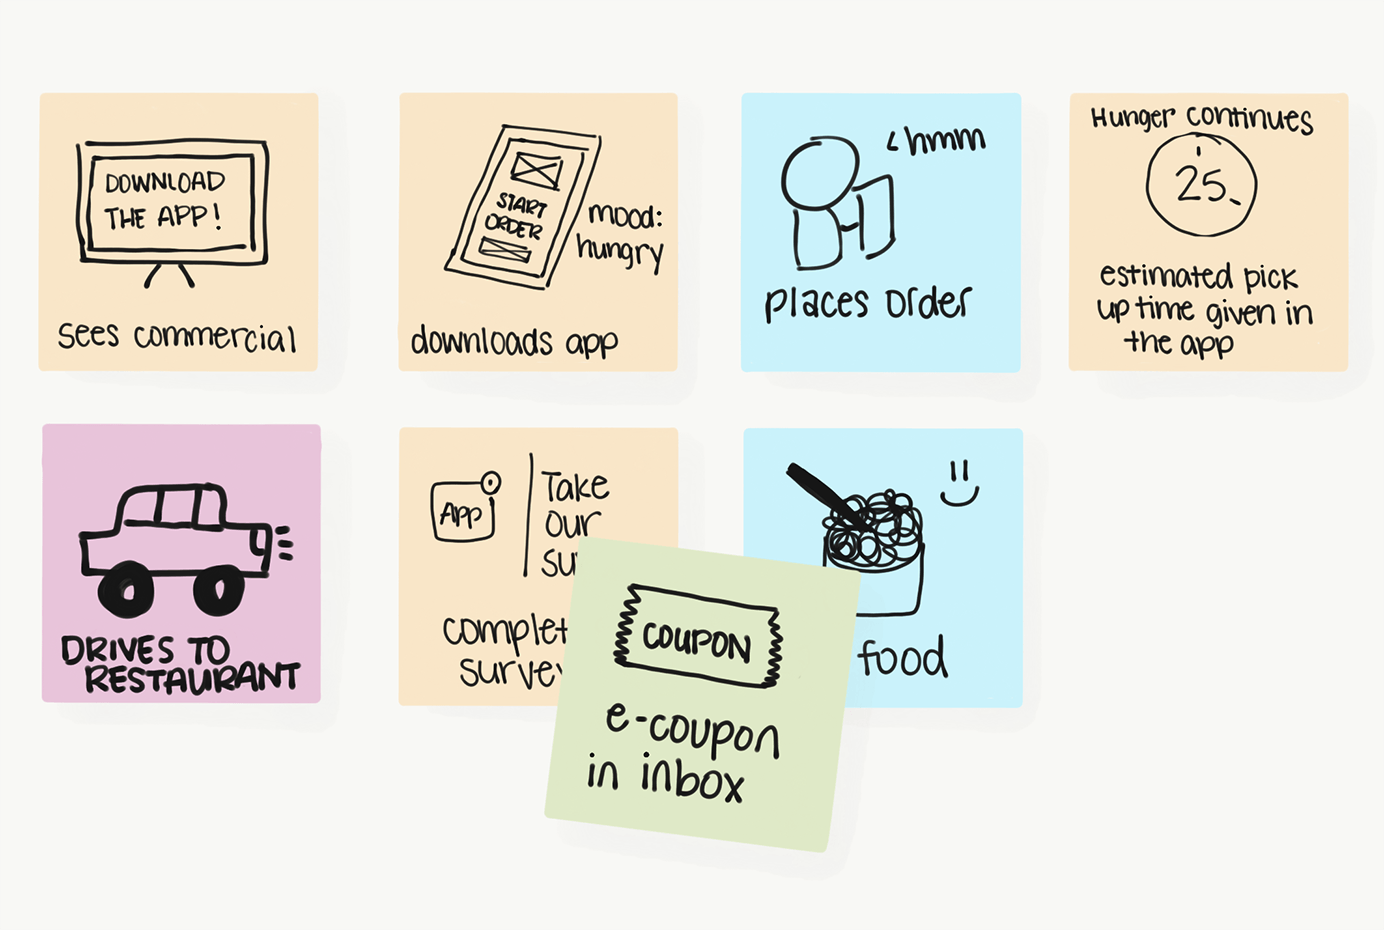 DOWNLOAD
THE APP!
sees commercial
START
ORDER
mood:
hungry
downloads app
hmm
places order
Hunger continues
25
estimated pick
up time given in
the app
DRIVES TO
RESTAURANT
APP
Take
our
su
complet
surve
COUPON
e-coupon
in inbox
food